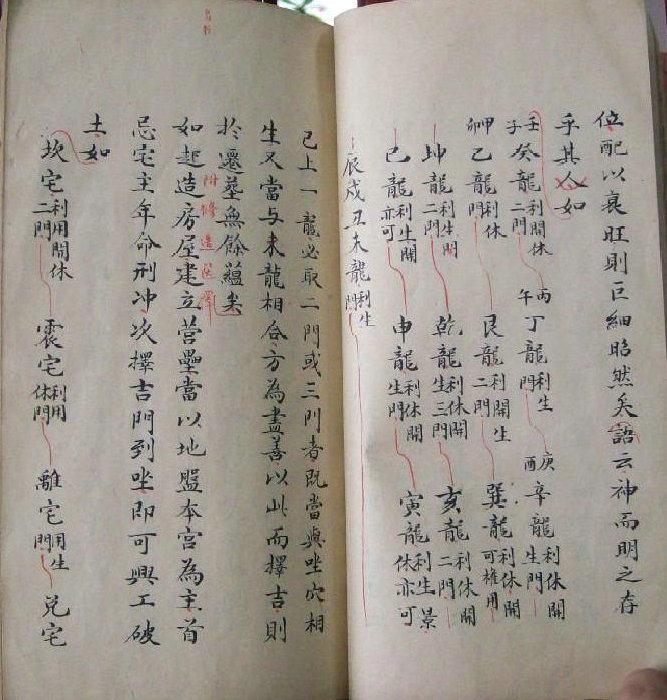 位配以衰旺則巨細昭然矣語云神而明之存
乎其人如
壬子癸龍利開休二門 丙午丁龍利生 庚酉辛龍利休開生門
甲卯乙龍利休二門 艮龍利開生二門 巽龍利休開可權用
坤龍利生開二門 乾龍利休開生三門 亥龍利休開二門
巳龍利生開亦可 申龍利休開生門 寅龍利生景休亦可
辰戌丑未龍利生門
已上一龍必取二門或三門者既當與坐穴相
生又當与來龍相合方為盡善以此而擇吉則
於遷塟無餘蘊矣
附修造塟擇
如起造房屋建立營壘當以地盤本宮為主首
忌宅主年命刑冲次擇吉門到坐即可興工破
土如
坎宅利用開休二門 震宅利用休門 離宅用生門 兌宅